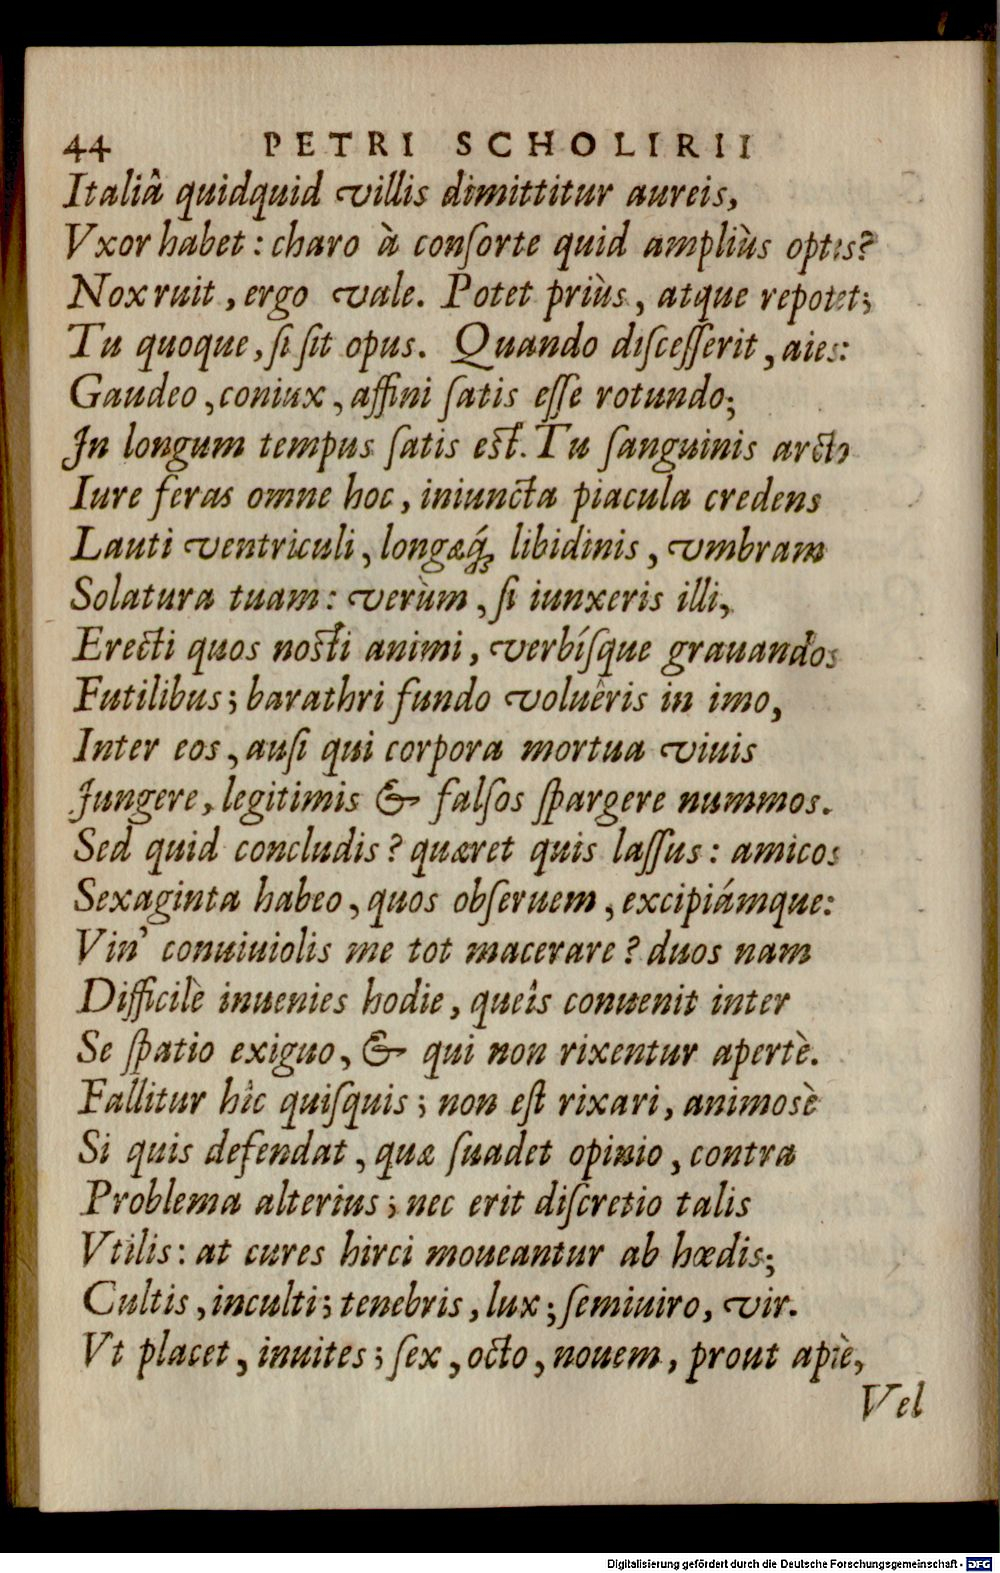 44 PETRI SCHOLIRII
Italiâ quidquid villis dimittitur aureis,
Vxor habet : charo à conſorte quid ampliùs optes?
Nox ruit, ergo vale. Potet priùs, atque repotet;
Tu quoque, ſi ſit opus. Quando diſceſſerit, aies:
Gaudeo, coniux, affini ſatis eſſe rotundo;
In longum tempus ſatis est. Tu ſanguinis arcto
Iure feras omne hoc, iniuncta piacula credens
Lauti ventriculi, longæq́; libidinis, vmbram
Solatura tuam: verùm, ſi iunxeris illi,
Erecti quos nosti animi, verbíſque grauandos
Futilibus; barathri fundo voluêris in imo,
Inter eos, auſi qui corpora mortua viuis
Jungere, legitimis & falſos ſpargere nummos.
Sed quid concludis? quæret quis laſſus: amicos
Sexaginta habeo, quos obſeruem, excipiámque:
Vin' conuiuiolis me tot macerare? duos nam
Difficilè inuenies hodie, queîs conuenit inter
Se ſpatio exiguo, & qui non rixentur apertè.
Fallitur hîc quiſquis; non eſt rixari, animosè
Si quis defendat, quæ ſuadet opinio, contra
Problema alterius; nec erit diſcretio talis
Vtilis: at cures hirci moueantur ab hœdis;
Cultis, inculti; tenebris, lux; ſemiuiro, vir.
Vt placet, inuites; ſex, octo, nouem, prout aptè,
Vel
Digitalisierung gefördert durch die Deutsche Forschungsgemeinschaft - DFG